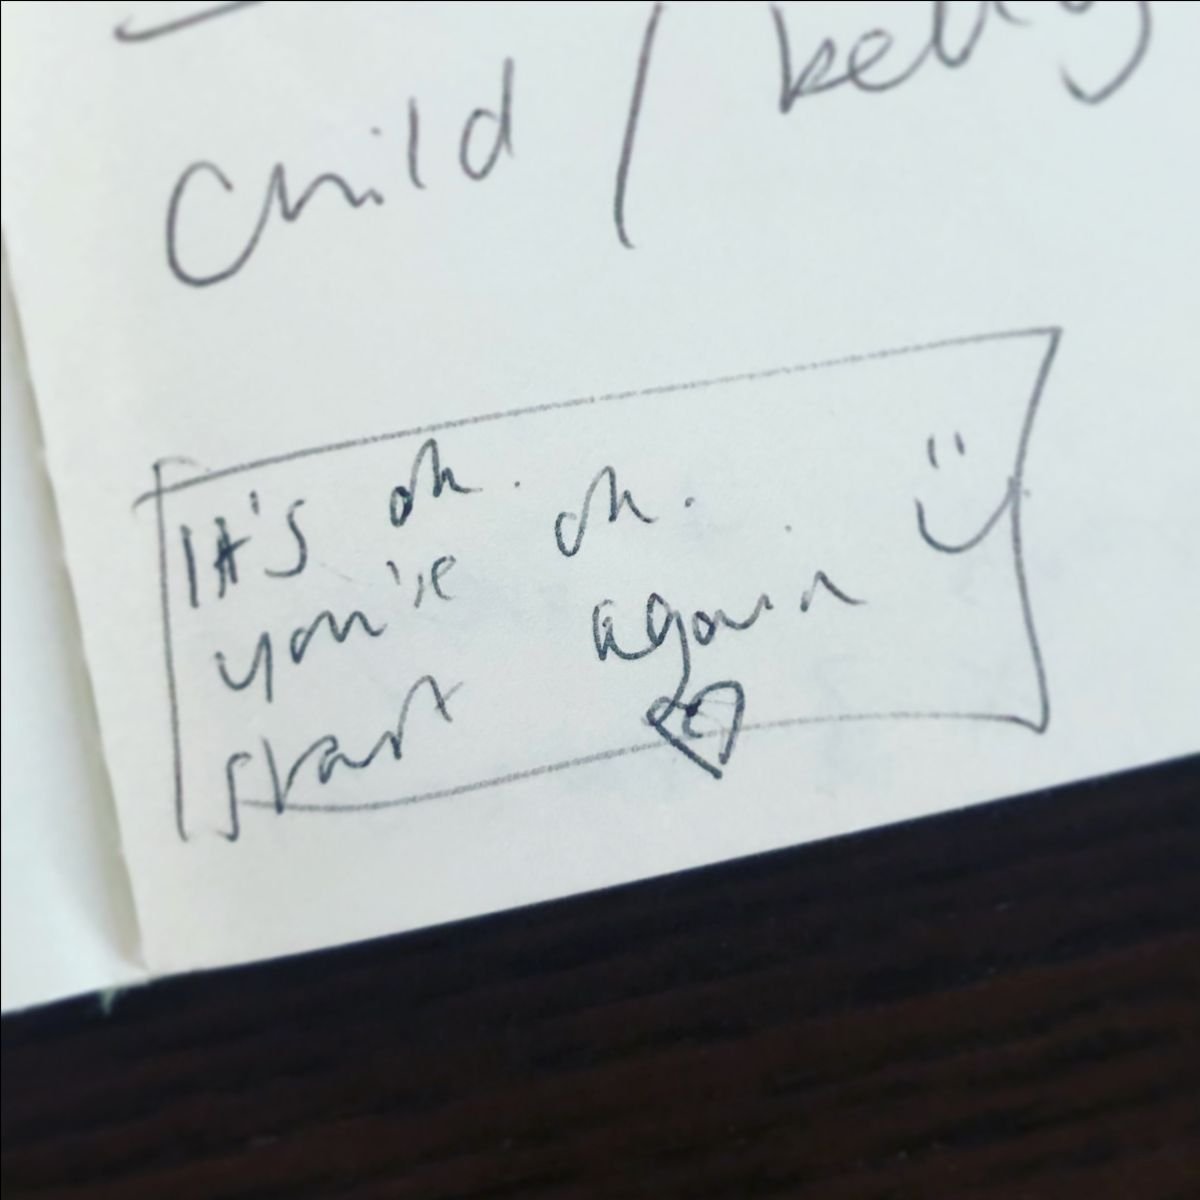 child /
It's ok.
you're ok.
start again